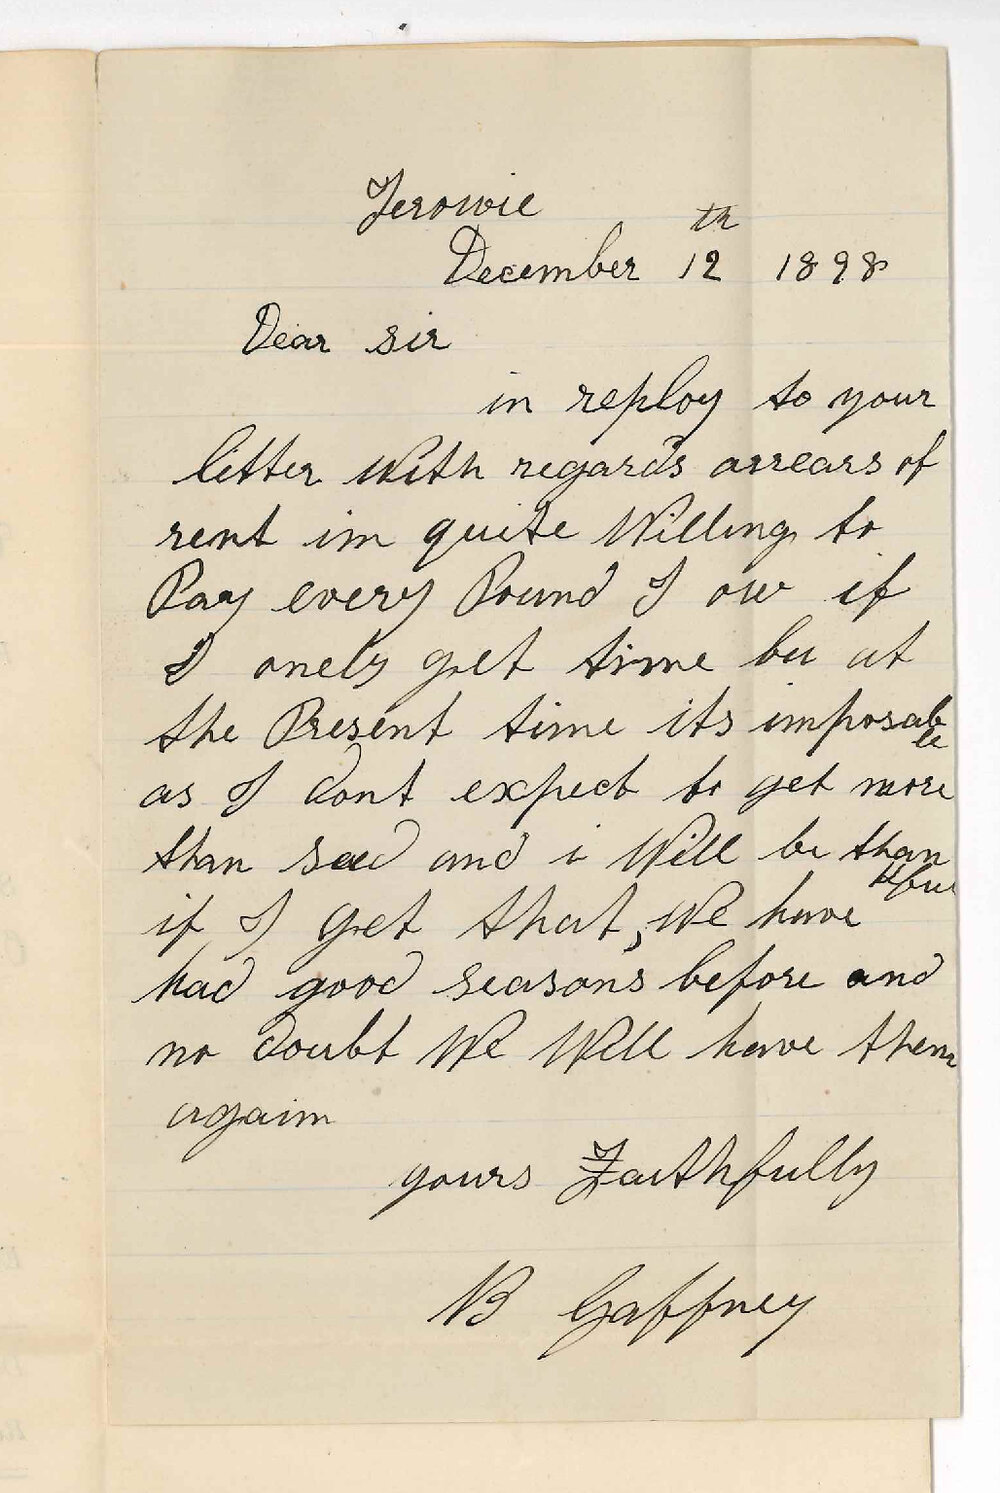 Terowie
December 12th 1898
Dear sir
in reploy to your
letter With regards arrears of
rent im quite Willing to
Pay every Pound I ow if
I onely get time bu at
the Present time its imposable
as I dont expect to get more
than seed and i Will be thankful
if I get that, We have
had good seasons before and
no doubt We Will have them
agaim
yours Faithfully
B Gaffney